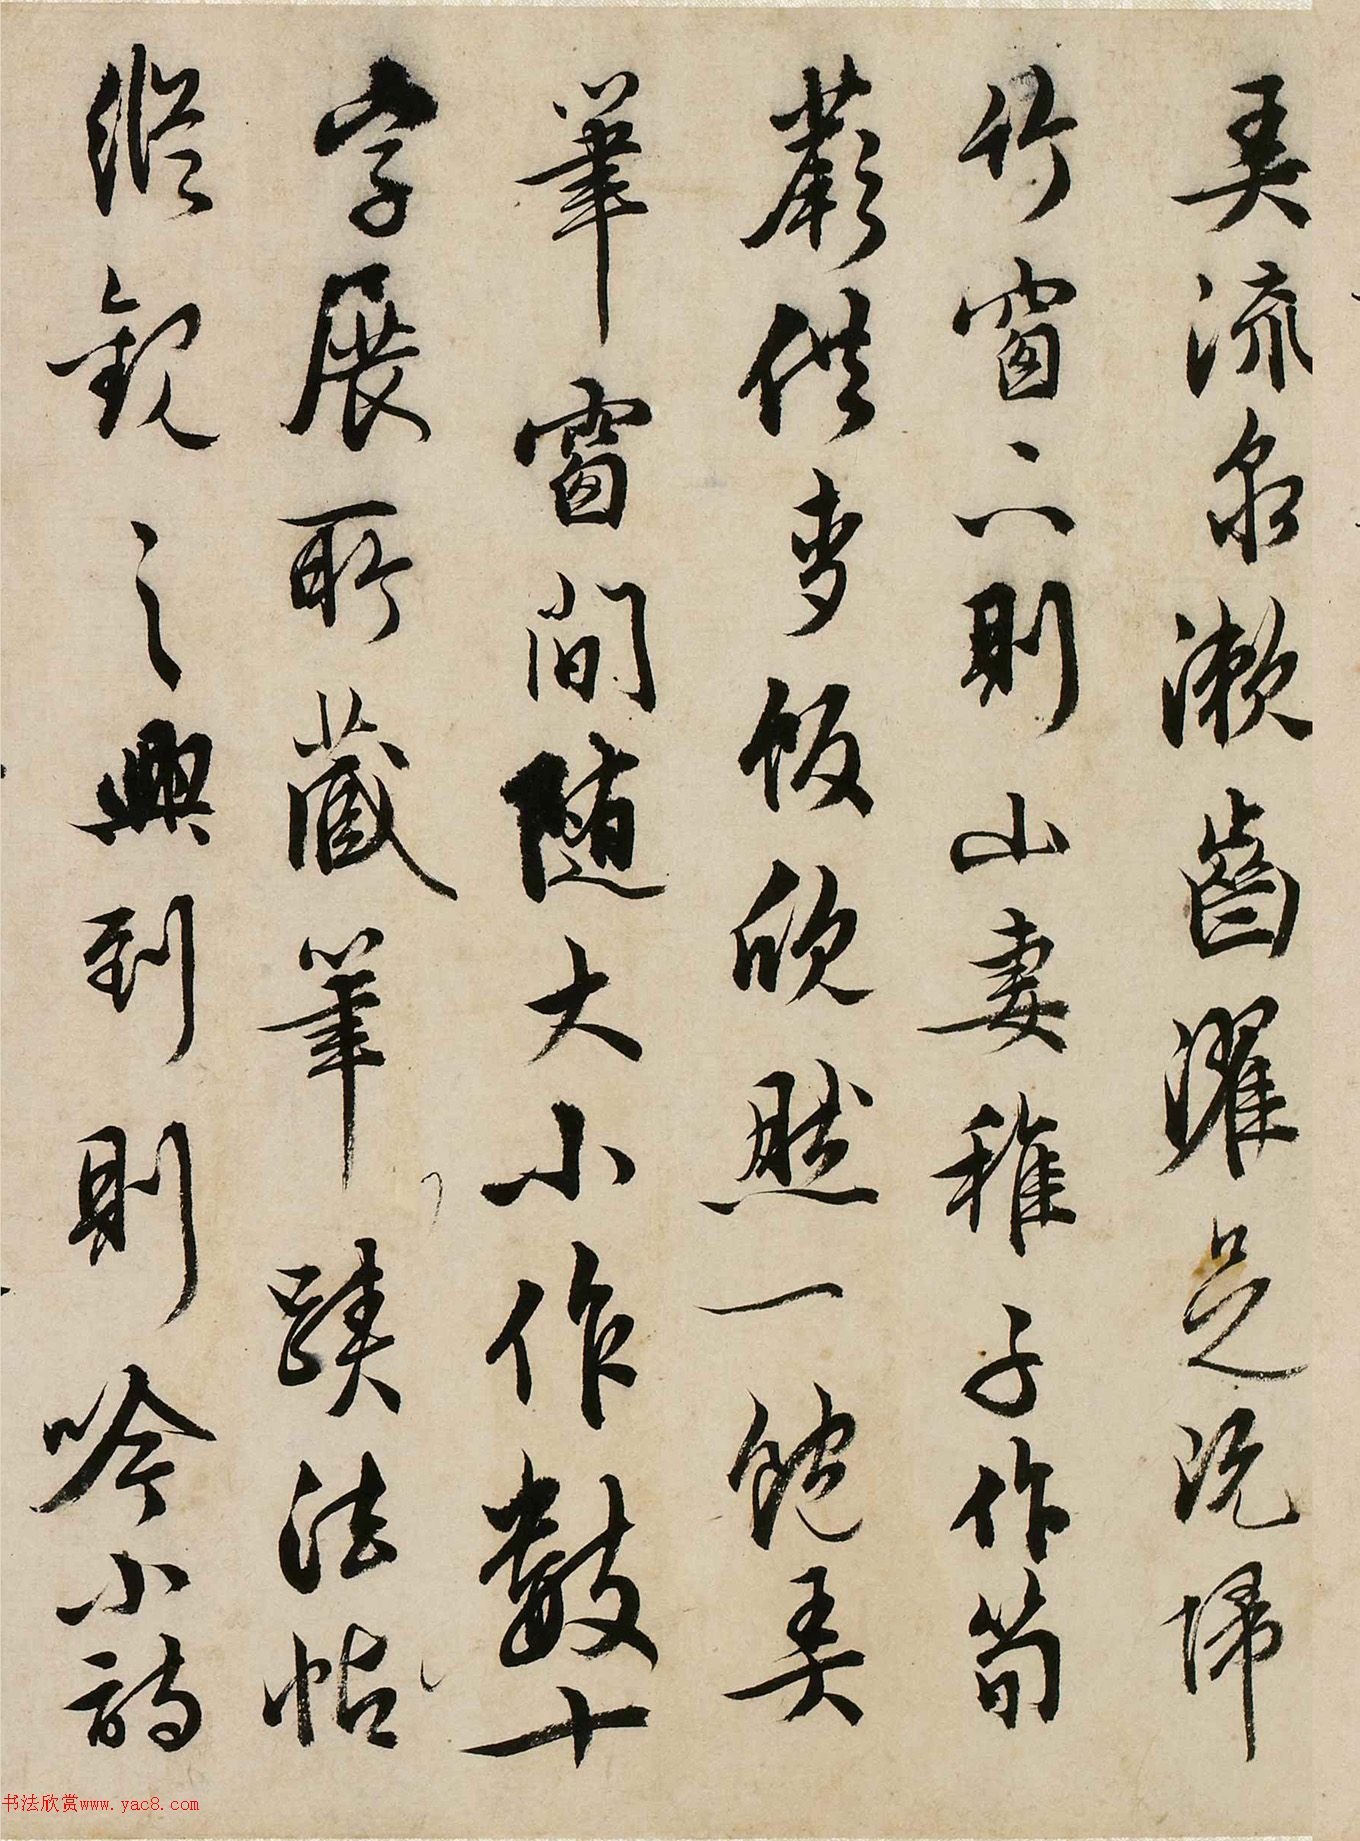 弄流泉漱齒濯足既歸
竹窗下則山妻稚子作筍
蕨供麥飯欣然一飽弄
筆窗間随大小作數十
字展所藏筆蹟法帖
縱觀之興到則吟小詩
书法欣赏www.yac8.com